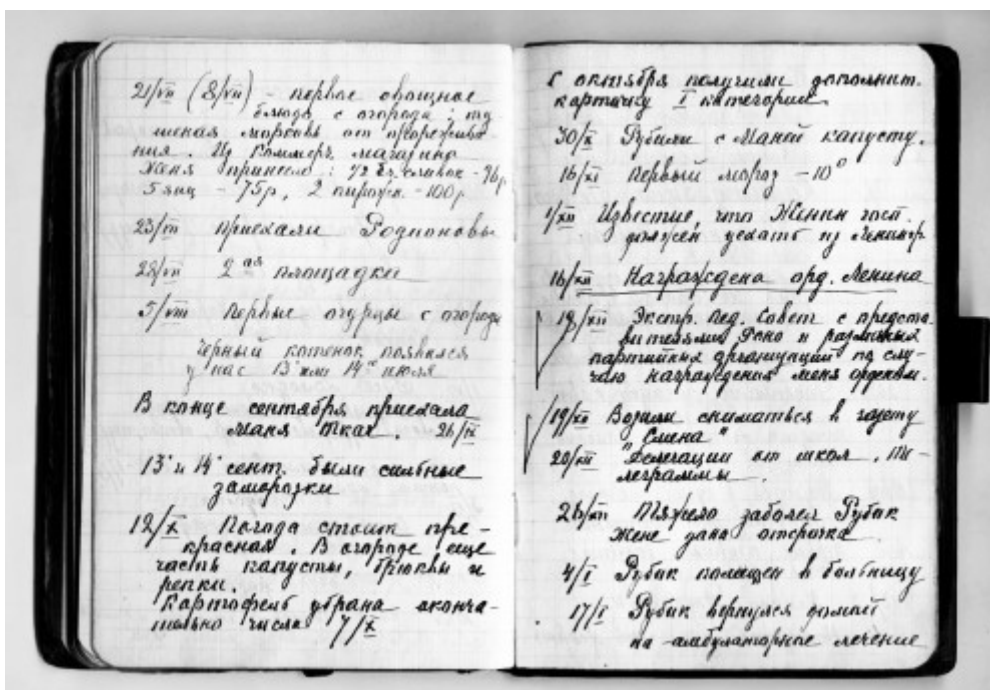 21/VII (8/VII) - первое овощное
блюдо с огорода: ту
шеная морковь от прорежива
ния. Из Коммерч. магазина
Женя принесла: 1/2 бт. сливок - 96р
5 яиц - 75р, 2 пирожн. - 100р
23/VII приехали Родионовы
28/VII 2ая площадка
5/VIII Первые огурцы с огорода
Черный котенок появился
у нас 13го или 14го июля
В конце сентября приехала
Маня Ткач. 26/IX
13го и 14го сент. были сильные
заморозки
12/X Погода стоит пре-
красная. В огороде еще
часть капусты, брюквы и
репки.
Картофель убрана оконча-
тельно числа 7/X
С октября получили дополнит.
карточку I категории
30/X Рубили с Маней капусту.
16/XI Первый мороз -10°
1/XII Известие, что Женин госп.
должен уехать из Ленингр
16/XII Награждена орд. Ленина
18/XII Экстр. Пед. Совет с предста-
вителями Роно и различных
партийных организаций по слу-
чаю награждения меня орденом.
19/XII Возили сниматься в газету
"Смена"
20/XII Делегации от школ. Те-
леграммы
26/XII Тяжело заболел Рубик
Жене дана отсрочка
4/I Рубик помещен в больницу
17/I Рубик вернулся домой
на амбулаторное лечение